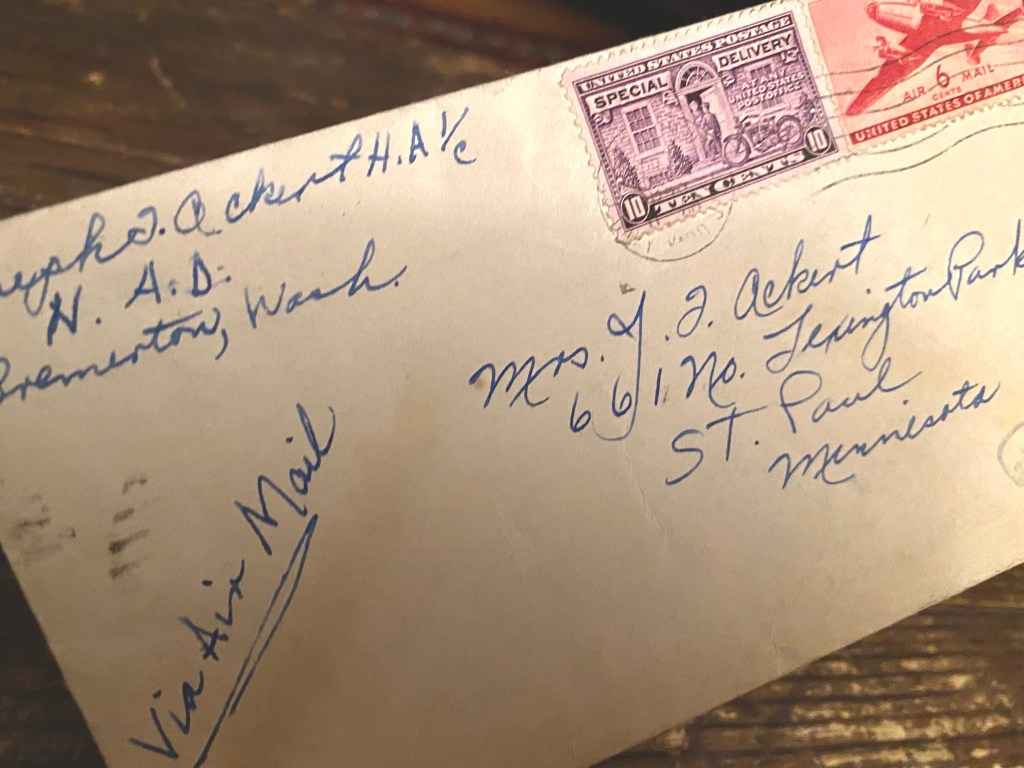 J. Ackert H.A 1/c
N. A.D.
Bremerton, Wash.
UNITED STATES POSTAGE
SPECIAL DELIVERY
UNITED STATES
POST OFFICE
10 TEN CENTS 10
6
CENTS
AIR MAIL
UNITED STATES OF AMERI
Mrs. J. J. Ackert
661 No. Lexington Park
ST. Paul
Minnesota
Via Air Mail